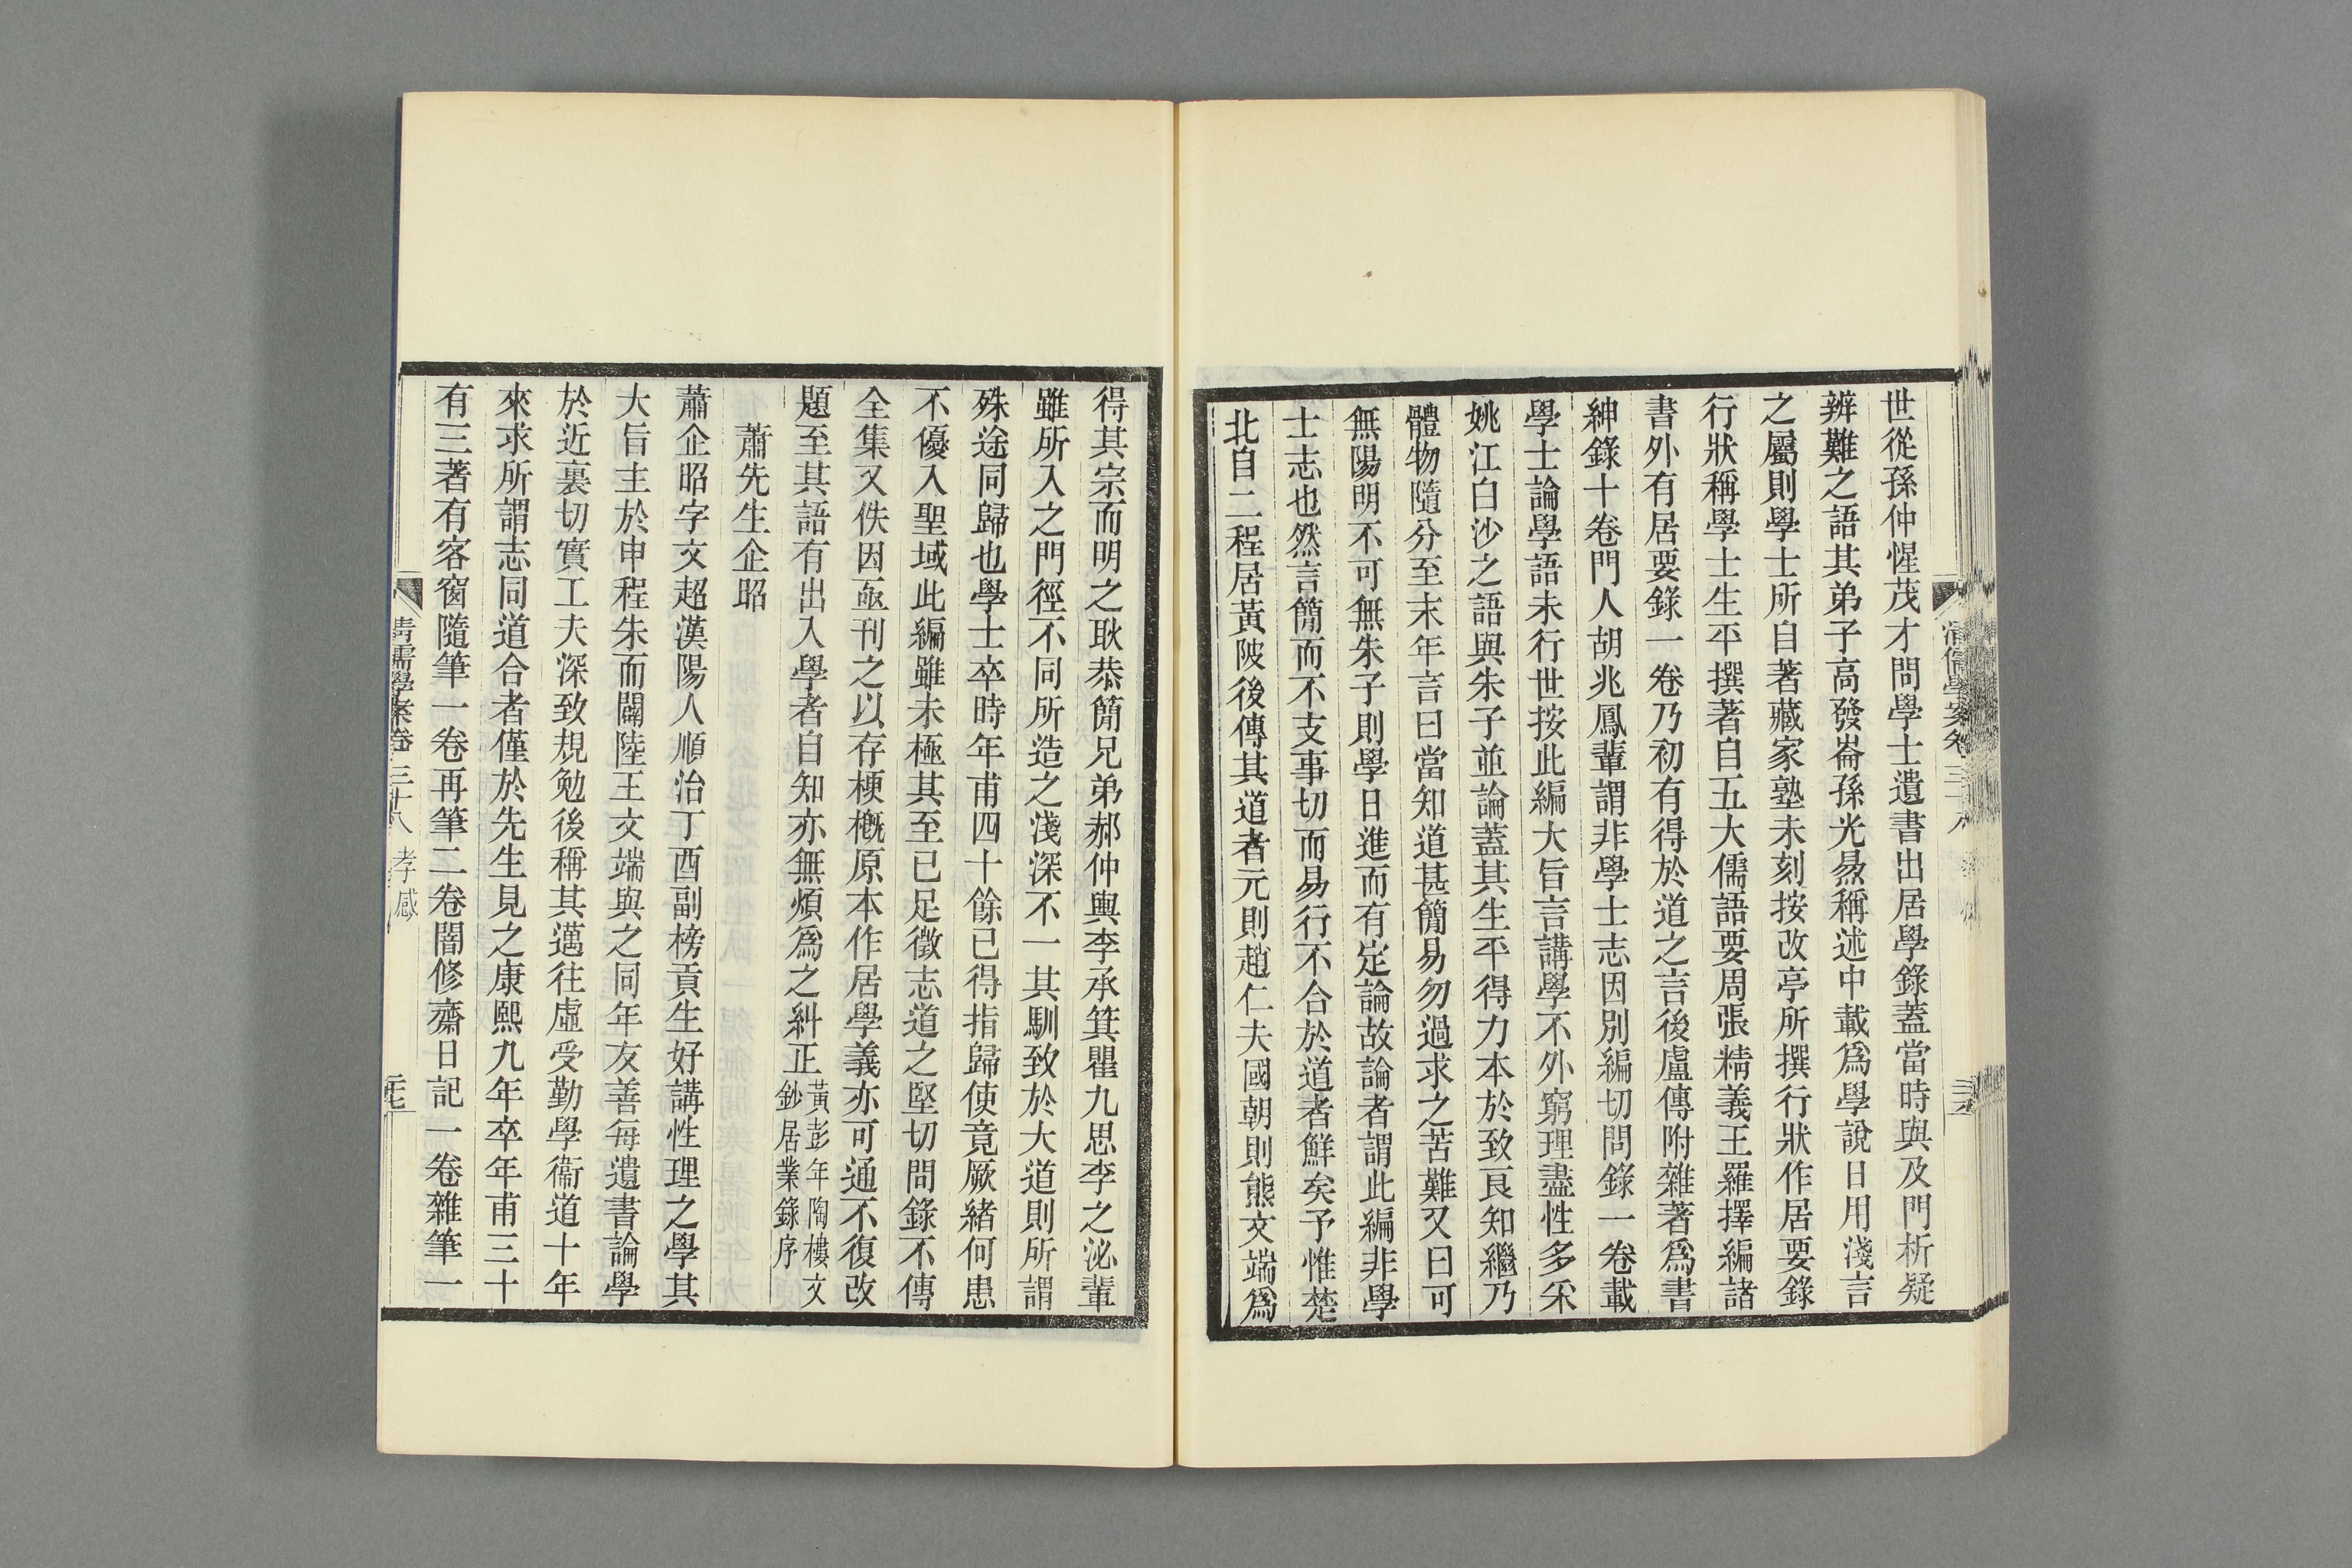 世從孫仲惺茂才問學士遺書出居學錄蓋當時與及門析疑
辨難之語其弟子高發崙孫光㬎稱述中載爲學說日用淺言
之屬則學士所自著藏家塾未刻按改亭所撰行狀作居要錄
行狀稱學士生平撰著自五大儒語要周張精義王羅擇編諸
書外有居要錄一卷乃初有得於道之言後盧傳附雜著爲書
紳錄十卷門人胡兆鳳輩謂非學士志因別編切問錄一卷載
學士論學語未行世按此編大旨言講學不外窮理盡性多采
姚江白沙之語與朱子並論蓋其生平得力本於致良知繼乃
體物隨分至末年言曰當知道甚簡易勿過求之苦難又曰可
無陽明不可無朱子則學日進而有定論故論者謂此編非學
士志也然言簡而不支事切而易行不合於道者鮮矣予惟楚
北自二程居黃陂後傳其道者元則趙仁夫國朝則熊文端爲
得其宗而明之耿恭簡兄弟郝仲輿李承箕瞿九思李之泌輩
雖所入之門徑不同所造之淺深不一其馴致於大道則所謂
殊途同歸也學士卒時年甫四十餘已得指歸使竟厥緒何患
不優入聖域此編雖未極其至已足徵志道之堅切問錄不傳
全集又佚因亟刊之以存梗槪原本作居學義亦可通不復改
題至其語有出入學者自知亦無煩爲之糾正黃彭年陶樓文
鈔居業錄序
蕭先生企昭
蕭企昭字文超漢陽人順治丁酉副榜貢生好講性理之學其
大旨主於申程朱而闢陸王文端與之同年友善每遺書論學
於近裏切實工夫深致規勉後稱其邁往虛受勤學衞道十年
來求所謂志同道合者僅於先生見之康熙九年卒年甫三十
有三著有客窗隨筆一卷再筆二卷闇修齋日記一卷雜筆一
清儒學案卷三十八 孝感